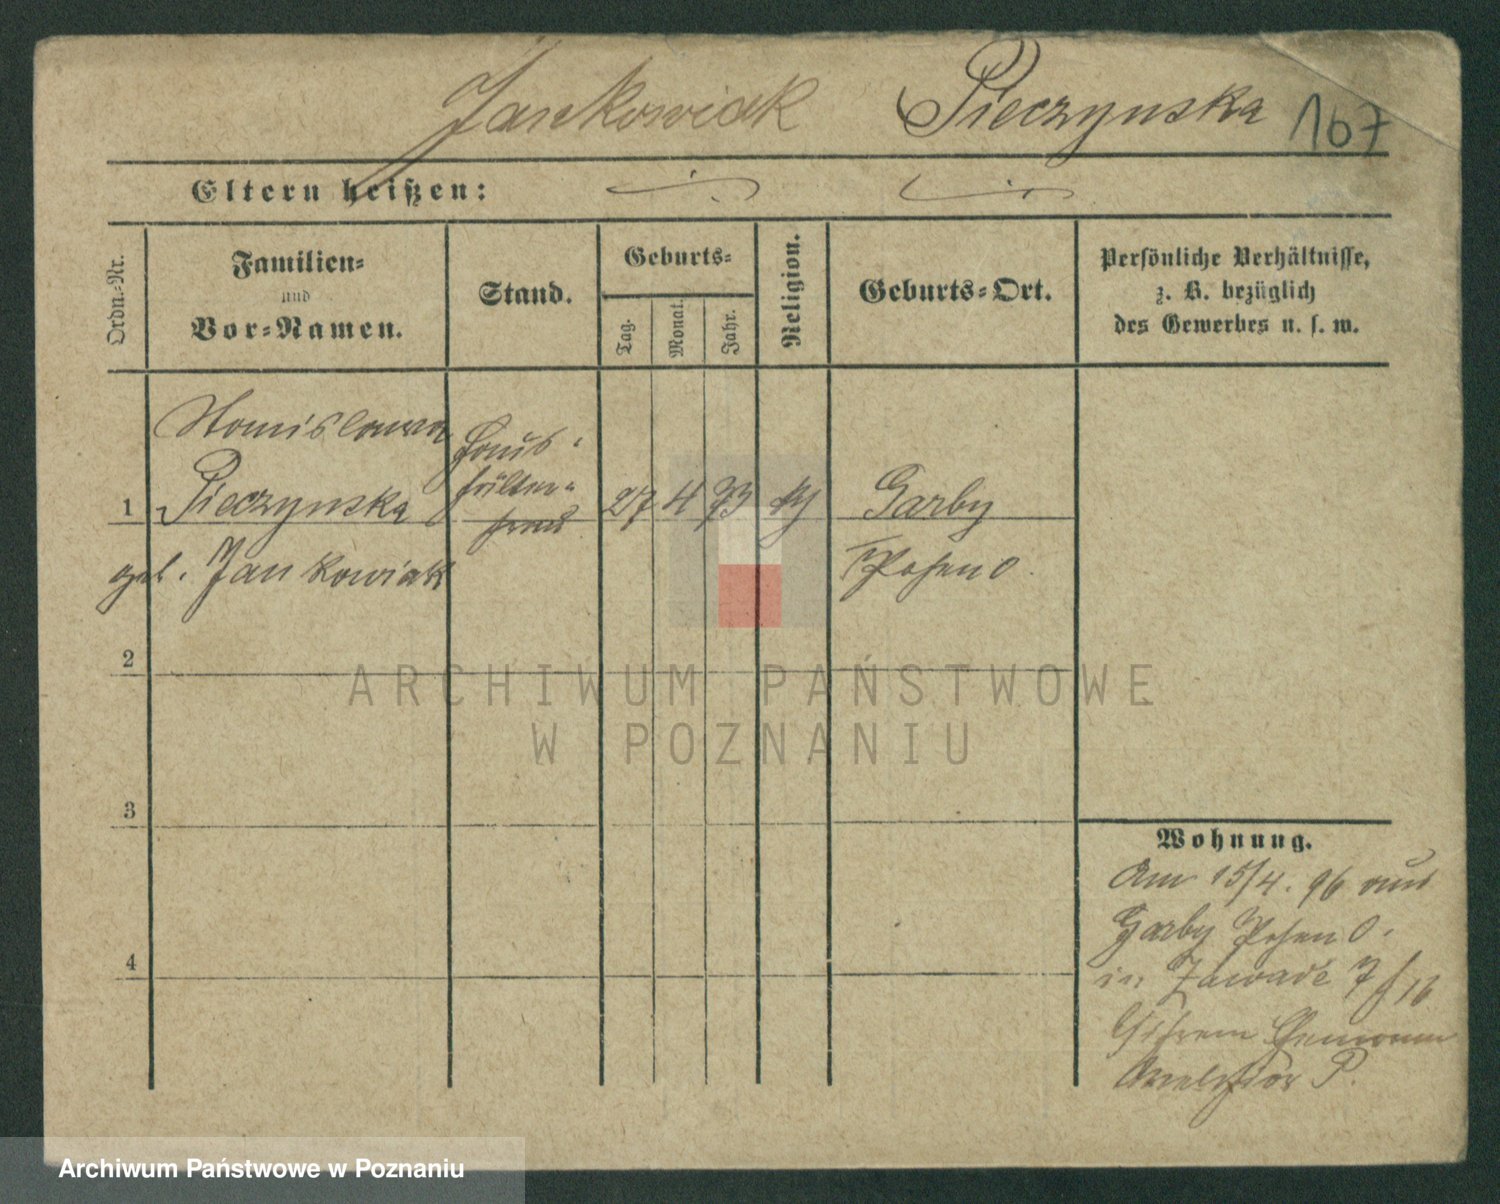 Jankowiak Pieczynska 167
Eltern heißen:
Ordn.-Nr.
Familien-
und
Vor-Namen.
Stand.
Geburts-
Tag.
Monat.
Jahr.
Religion.
Geburts-Ort.
Persönliche Verhältnisse,
z. B. bezüglich
des Gewerbes u. s. w.
Stanislawa
Pieczynska
geb. Jankowiak
1
27 4 73
Garby
Posen O.
2
3
4
Wohnung.
Am 15/4. 96 aus
Garby Posen O.
in Zawade 7
P.
ARCHIWUM PAŃSTWOWE
W POZNANIU
Archiwum Państwowe w Poznaniu